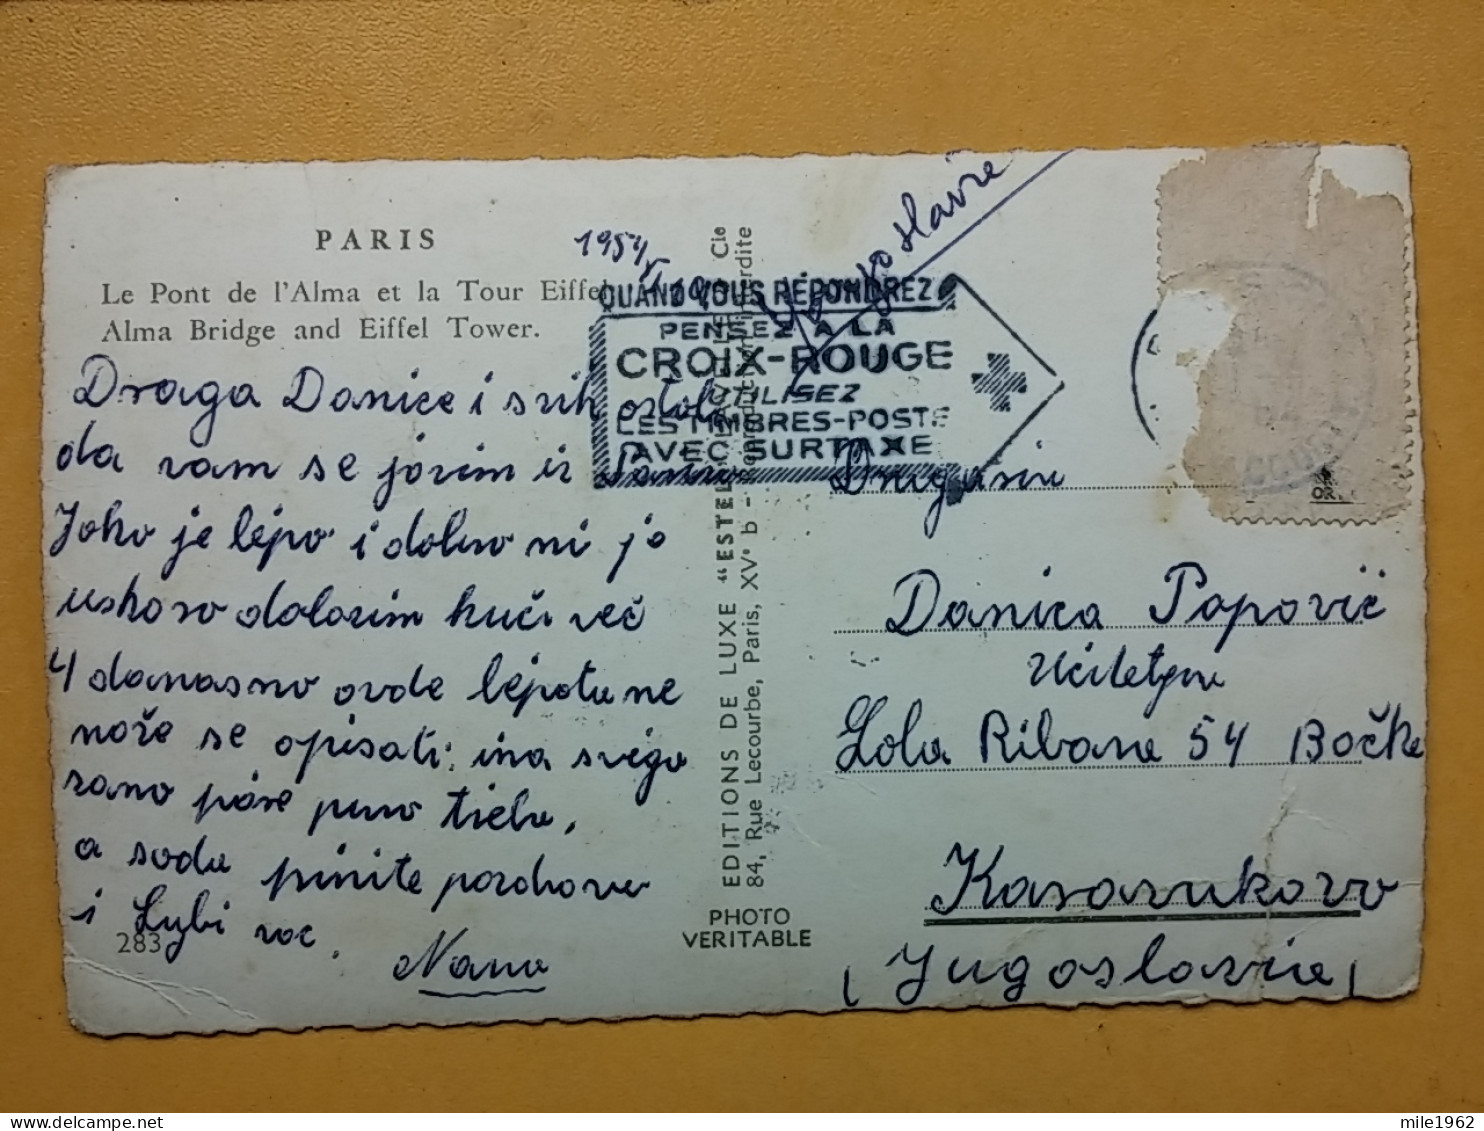 PARIS
Le Pont de l'Alma et la Tour Eiffel
Alma Bridge and Eiffel Tower.
1954
Draga Danice i svih ostali
da vam se javim iz Pariza
Jako je lepo i dobro mi je
uskoro dolazim kući već
4 dana smo ovde lepotu ne
može se opisati; ima svega
samo pare puno treba,
a sada primite pozdrave
i Ljubi vas.
Nana
283
QUAND VOUS RÉPONDREZ
PENSEZ A LA
CROIX-ROUGE
UTILISEZ
LES TIMBRES-POSTE
AVEC SURTAXE
Yugoslavie
EDITIONS DE LUXE "ESTEL"
84, Rue Lecourbe, Paris, XVe b -
Cie
interdite
PHOTO
VERITABLE
Drugarica
Danica Popović
Učiteljica
Lola Ribara 54 Bočke
Karavukovo
(Jugoslavia)
mile1962